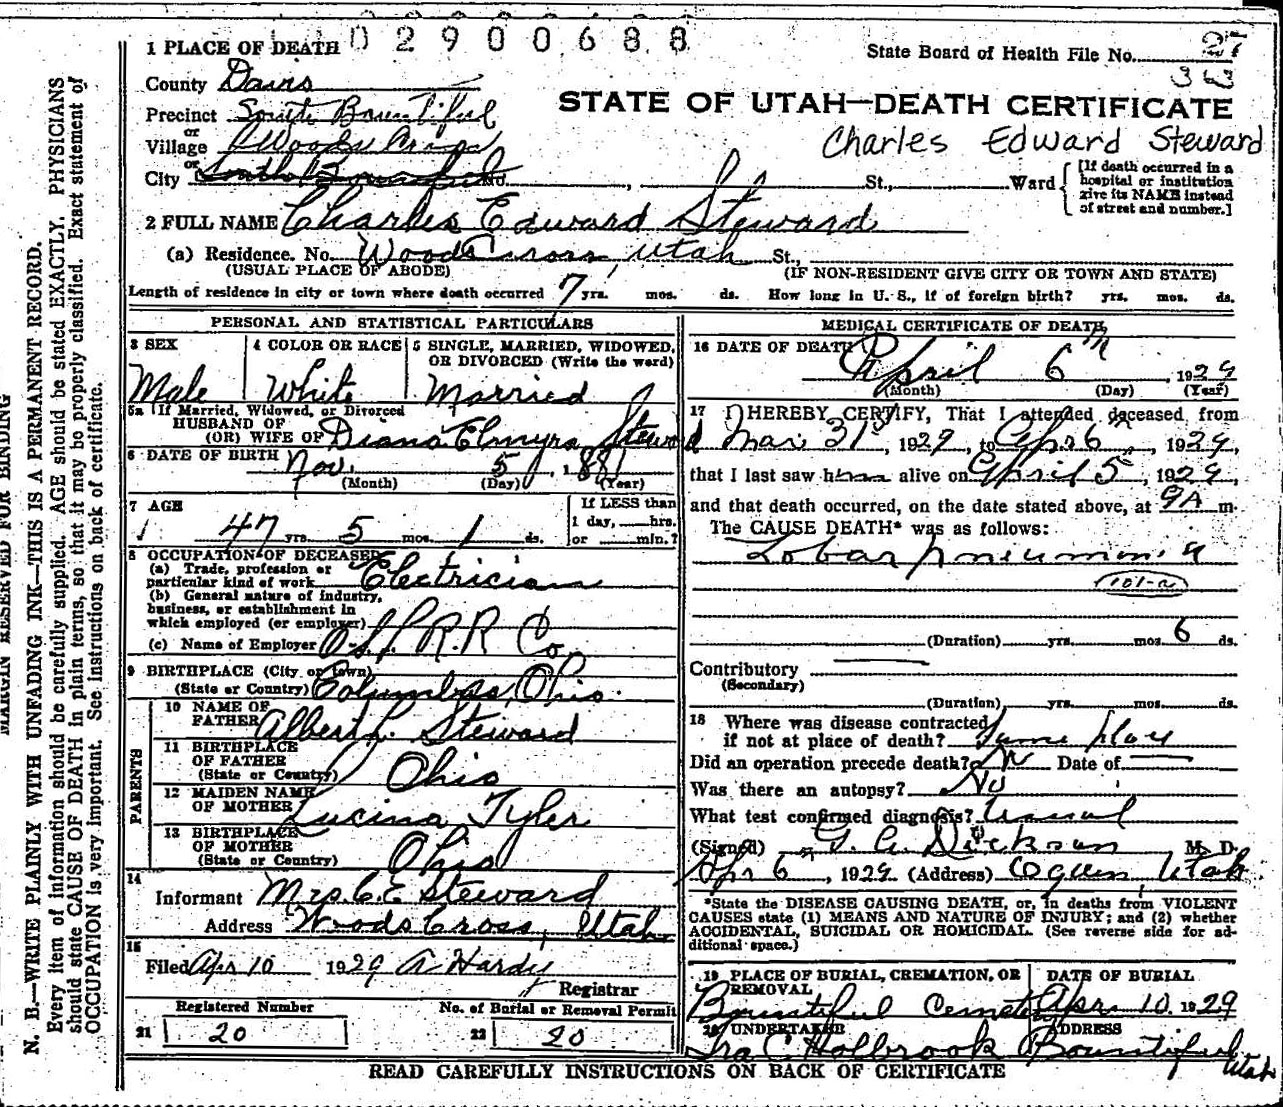 0 2 9 0 0 6 8 8
1 PLACE OF DEATH
State Board of Health File No. 27
County Davis
Precinct South Bountiful
or
Village Woods Cross
or
City South Bountiful No. , St., Ward
STATE OF UTAH—DEATH CERTIFICATE
Charles Edward Steward
[If death occurred in a
hospital or institution
give its NAME instead
of street and number.]
2 FULL NAME Charles Edward Steward
(a) Residence. No. Woods Cross, Utah St.,
(USUAL PLACE OF ABODE) (IF NON-RESIDENT GIVE CITY OR TOWN AND STATE)
Length of residence in city or town where death occurred 7 yrs. mos. ds. How long in U. S., if of foreign birth? yrs. mos. ds.
PERSONAL AND STATISTICAL PARTICULARS
3 SEX 4 COLOR OR RACE 5 SINGLE, MARRIED, WIDOWED,
OR DIVORCED (Write the word)
Male White Married
5a If Married, Widowed, or Divorced
HUSBAND OF
(OR) WIFE OF Diana Elmyra Steward
6 DATE OF BIRTH Nov. 5, 1881
(Month) (Day) (Year)
7 AGE If LESS than
1 day, hrs.
47 yrs. 5 mos. 1 ds. or min.?
8 OCCUPATION OF DECEASED
(a) Trade, profession or
particular kind of work Electrician
(b) General nature of industry,
business, or establishment in
which employed (or employer)
(c) Name of Employer O.S.L. R.R Co.
9 BIRTHPLACE (City or town)
(State or Country) Columbus, Ohio.
PARENTS
10 NAME OF
FATHER Albert L. Steward
11 BIRTHPLACE
OF FATHER
(State or Country) Ohio
12 MAIDEN NAME
OF MOTHER Lucina Tyler
13 BIRTHPLACE
OF MOTHER
(State or Country) Ohio
14
Informant Mrs. C E Steward
Address Woods Cross, Utah
15
Filed Apr 10 1929 A Hardy
Registrar
Registered Number No. of Burial or Removal Permit
21 20 22 20
MEDICAL CERTIFICATE OF DEATH
16 DATE OF DEATH
April 6th, 1929
(Month) (Day) (Year)
17 I HEREBY CERTIFY, That I attended deceased from
Mar 31st, 1929, to Apr 6th, 1929,
that I last saw him alive on April 5th, 1929,
and that death occurred, on the date stated above, at 9A m.
The CAUSE DEATH* was as follows:
Lobar pneumonia
101-a
(Duration) yrs. mos. 6 ds.
Contributory
(Secondary)
(Duration) yrs. mos. ds.
18 Where was disease contracted
if not at place of death? Same place
Did an operation precede death? No Date of
Was there an autopsy? No
What test confirmed diagnosis? Usual
(Signed) G. A. Dickson M. D.
Apr 6, 1929 (Address) Ogden, Utah
*State the DISEASE CAUSING DEATH, or, in deaths from VIOLENT
CAUSES state (1) MEANS AND NATURE OF INJURY; and (2) whether
ACCIDENTAL, SUICIDAL OR HOMICIDAL. (See reverse side for ad-
ditional space.)
19 PLACE OF BURIAL, CREMATION, OR DATE OF BURIAL
REMOVAL
Bountiful Cemetery Apr. 10. 1929
20 UNDERTAKER ADDRESS
Ira C. Holbrook Bountiful
Utah
READ CAREFULLY INSTRUCTIONS ON BACK OF CERTIFICATE
MARGIN RESERVED FOR BINDING
N. B.—WRITE PLAINLY WITH UNFADING INK—THIS IS A PERMANENT RECORD.
Every item of information should be carefully supplied. AGE should be stated EXACTLY. PHYSICIANS
should state CAUSE OF DEATH in plain terms, so that it may be properly classified. Exact statement of
OCCUPATION is very important. See instructions on back of certificate.